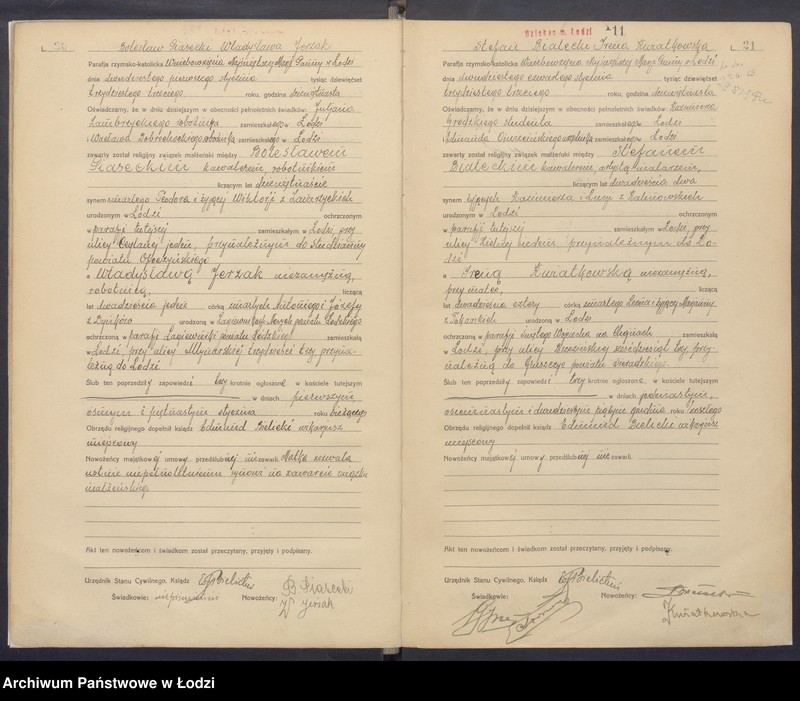 L. 20 Bolesław Siarecki Władysława Jerzak
Parafja rzymsko-katolicka Wniebowzięcia Najświętszej Marji Panny w Łodzi
dnia dwudziestego pierwszego stycznia tysiąc dziewięćset
trzydziestego trzeciego roku, godzina dziewiętnasta
Oświadczamy, że w dniu dzisiejszym w obecności pełnoletnich świadków: Juljana
robotnika zamieszkałego w Łodzi
i Wacława robotnika zamieszkałego w Łodzi
zawarty został religijny związek małżeński między Bolesławem
Siareckim kawalerem, robotnikiem
liczącym lat dziewiętnaście
synem zmarłego Teodora i żyjącej Wiktorji z
urodzonym w Łodzi ochrzczonym
w parafji tutejszej zamieszkałym w Łodzi, przy
ulicy jeden, przynależnym do
powiatu Opoczyńskiego
a Władysławą Jerzak niezamężną,
robotnicą, liczącą
lat dwadzieścia jeden córką zmarłych Antoniego i Józefy
z urodzoną w powiatu Łódzkiego
ochrzczoną w parafji Łagiewniki powiatu Łódzkiego zamieszkałą
w Łodzi, przy ulicy Młynarskiej trzydzieści trzy przyna-
leżną do Łodzi
Ślub ten poprzedziły zapowiedzi trzy krotnie ogłoszone w kościele tutejszym
w dniach pierwszym,
ósmym i piętnastym stycznia roku bieżącego
Obrzędu religijnego dopełnił ksiądz Edmund Bielicki wikarjusz
miejscowy
Nowożeńcy majątkowej umowy przedślubnej nie zawarli. Matka zezwala
ustnie niepełnoletniemu synowi na zawarcie związku
małżeńskiego
Akt ten nowożeńcom i świadkom został przeczytany, przyjęty i podpisany.
Urzędnik Stanu Cywilnego. Ksiądz E. Bielicki
Świadkowie: niepiśmienni Nowożeńcy: B. Siarecki
W Jerzak
11
L. 21
Stefan Białecki Irena Kwiatkowska
Parafja rzymsko-katolicka Wniebowzięcia Najświętszej Marji Panny w Łodzi
dnia dwudziestego czwartego stycznia tysiąc dziewięćset
trzydziestego trzeciego roku, godzina dziewiętnasta
Oświadczamy, że w dniu dzisiejszym w obecności pełnoletnich świadków: Kazimierza
studenta zamieszkałego w Łodzi
i Edmunda zamieszkałego w Łodzi
zawarty został religijny związek małżeński między Stefanem
Białeckim kawalerem, artystą malarzem,
liczącym lat dwadzieścia dwa
synem żyjących Kazimierza i Łucji z Kalinowskich
urodzonym w Łodzi ochrzczonym
w parafji tutejszej zamieszkałym w Łodzi, przy
ulicy przynależnym do Ło-
dzi
a Ireną Kwiatkowską niezamężną,
przy matce, liczącą
lat dwadzieścia cztery córką zmarłego Leona i żyjącej Marjanny
z Tokarskich urodzoną w Łodzi
ochrzczoną w parafji świętego Wojciecha na Chojnach zamieszkałą
w Łodzi, przy ulicy Brzezińskiej sześćdziesiąt trzy, przy-
należną do powiatu Sieradzkiego.
Ślub ten poprzedziły zapowiedzi trzy krotnie ogłoszone, w kościele tutejszym
w dniach
osiemnastym i dwudziestym piątym grudnia roku zeszłego
Obrzędu religijnego dopełnił ksiądz Edmund Bielicki wikarjusz
miejscowy
Nowożeńcy majątkowej umowy przedślubnej nie zawarli.
Akt ten nowożeńcom i świadkom został przeczytany, przyjęty i podpisany.
Urzędnik Stanu Cywilnego. Ksiądz E. Bielicki
Świadkowie: Nowożeńcy:
Kwiatkowska
Archiwum Państwowe w Łodzi